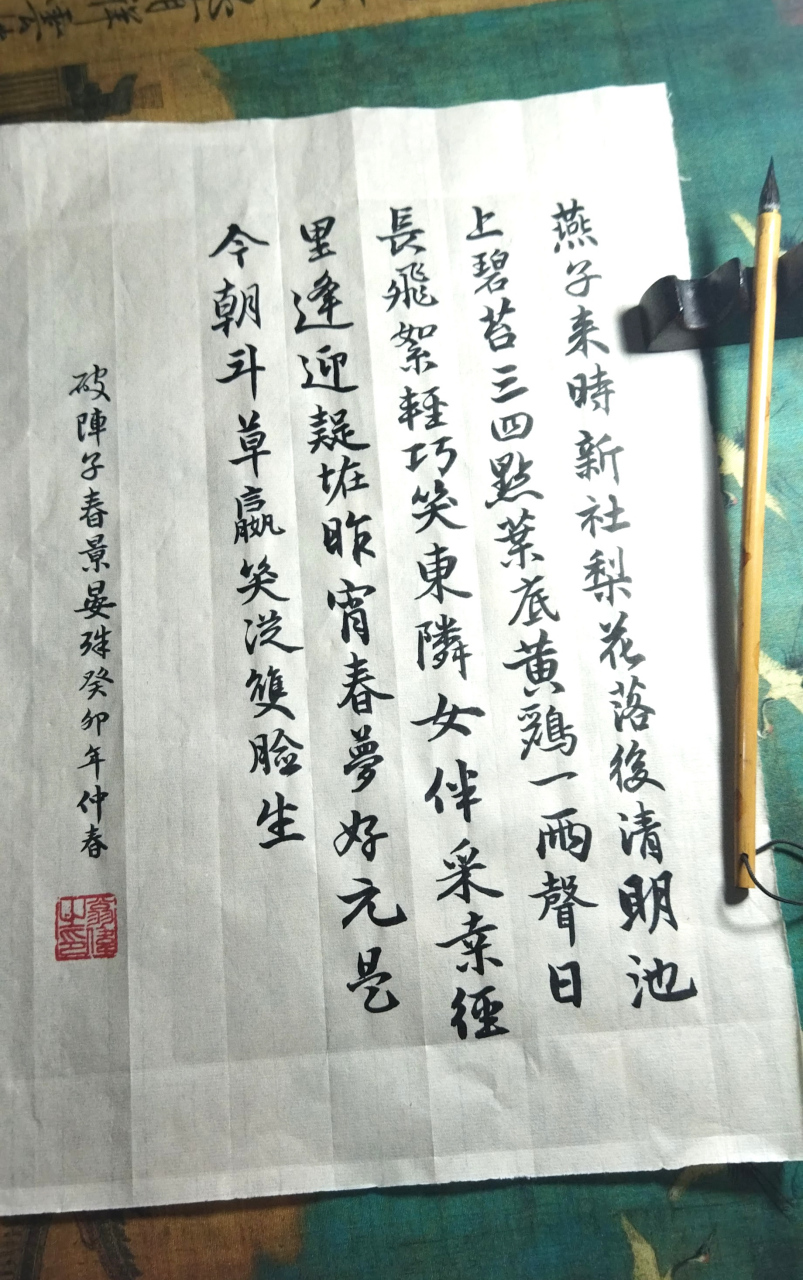 燕子来時新社梨花落後清明池
上碧苔三四點葉底黄鸝一兩聲日
長飛絮輕巧笑東隣女伴采桑徑
里逢迎疑恠昨宵春夢好元是
今朝斗草贏笑從雙臉生
破陣子春景晏殊癸卯年仲春